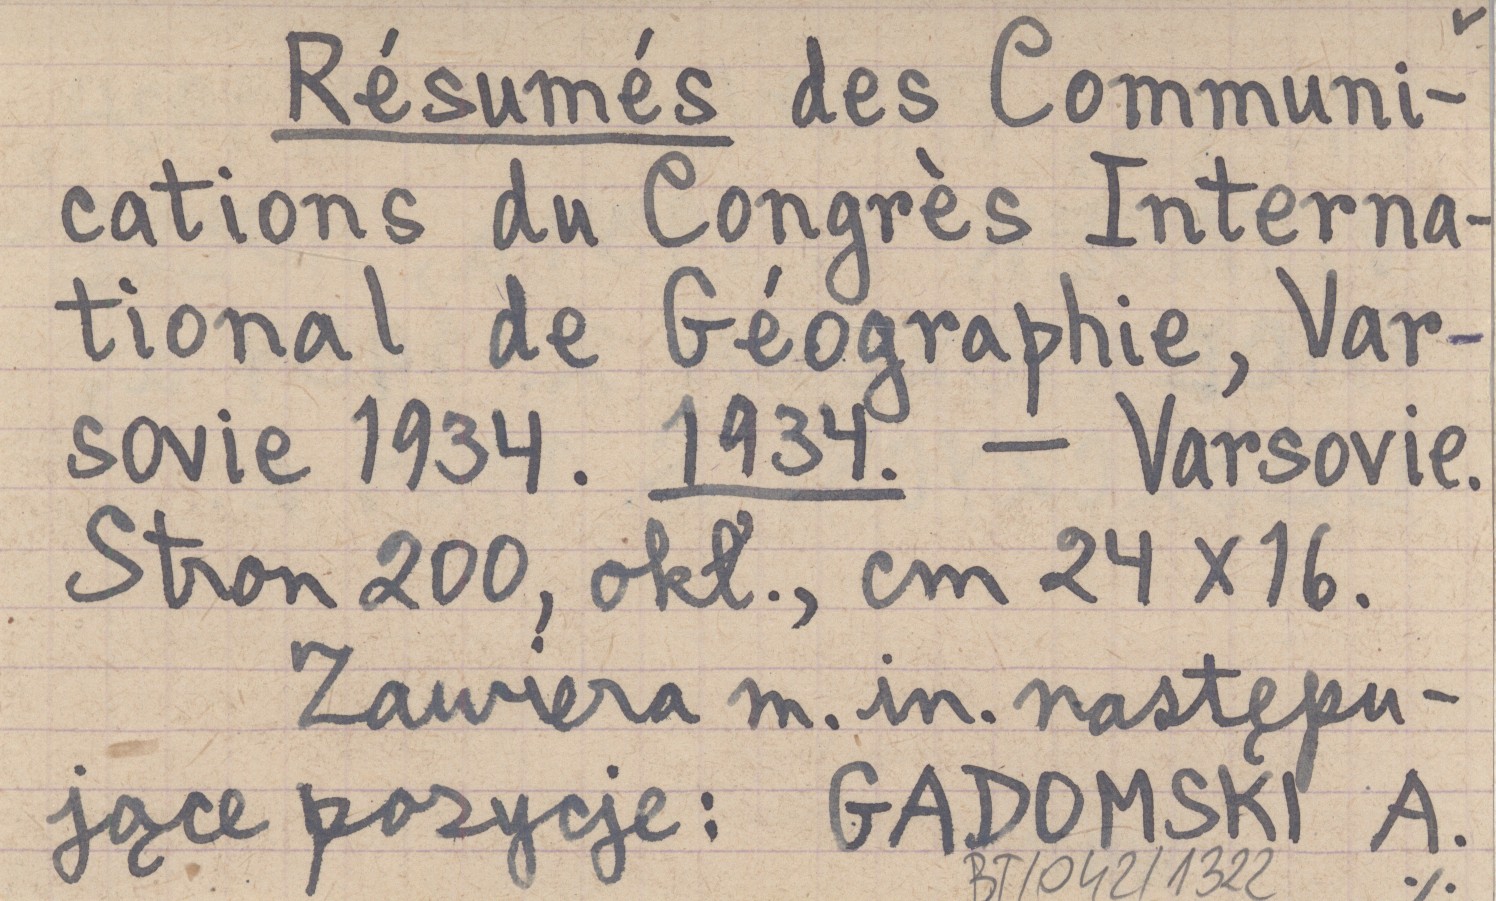 Résumés des Communi-
cations du Congrès Interna-
tional de Géographie, Var-
sovie 1934. 1934. — Varsovie.
Stron 200, okł., cm 24 x 16.
Zawiera m. in. następu-
jące pozycje: GADOMSKI A.
BT/042/1322 ./.